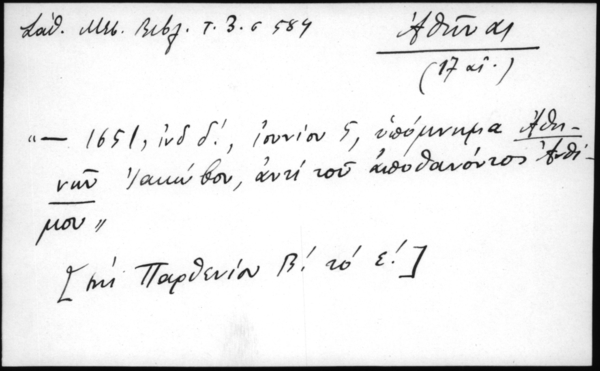 Σάθ. Μεσ. Βιβλ. τ. 3. σ 584
Ἀθῆναι
(17 αἰ.)
"— 1651, ἰνδ δ!, ἰουνίου 5, ὑπόμνημα Ἀθη-
νῶν Ἰακώβου, ἀντί τοῦ ἀποθανόντος Ἀνθί-
μου"
[ἐπί Παρθενίου Β! τό ε!]